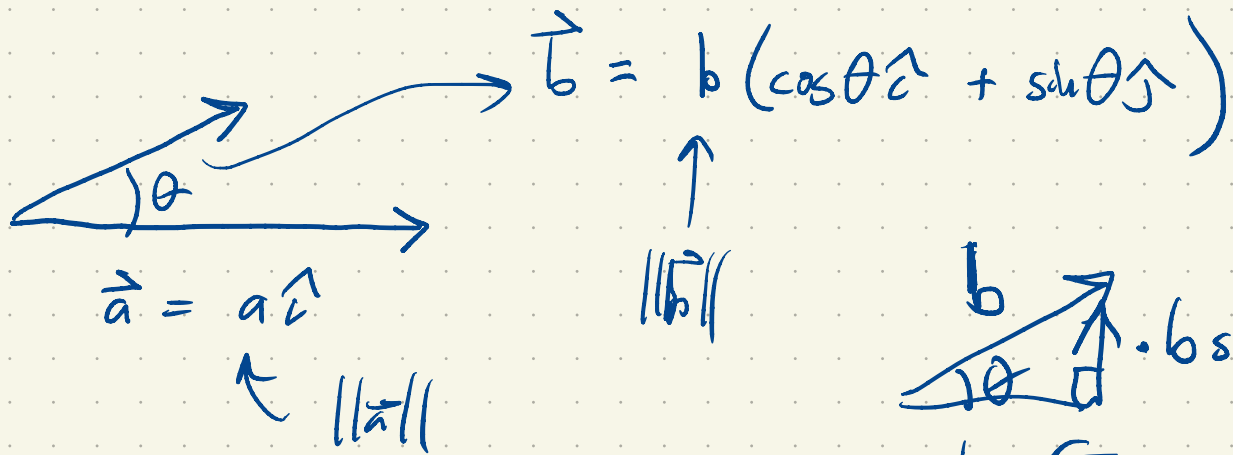 b⃗ = b (cos θ î + sin θ ĵ)
θ
a⃗ = a î
||b⃗||
||a⃗||
b
θ
. b s